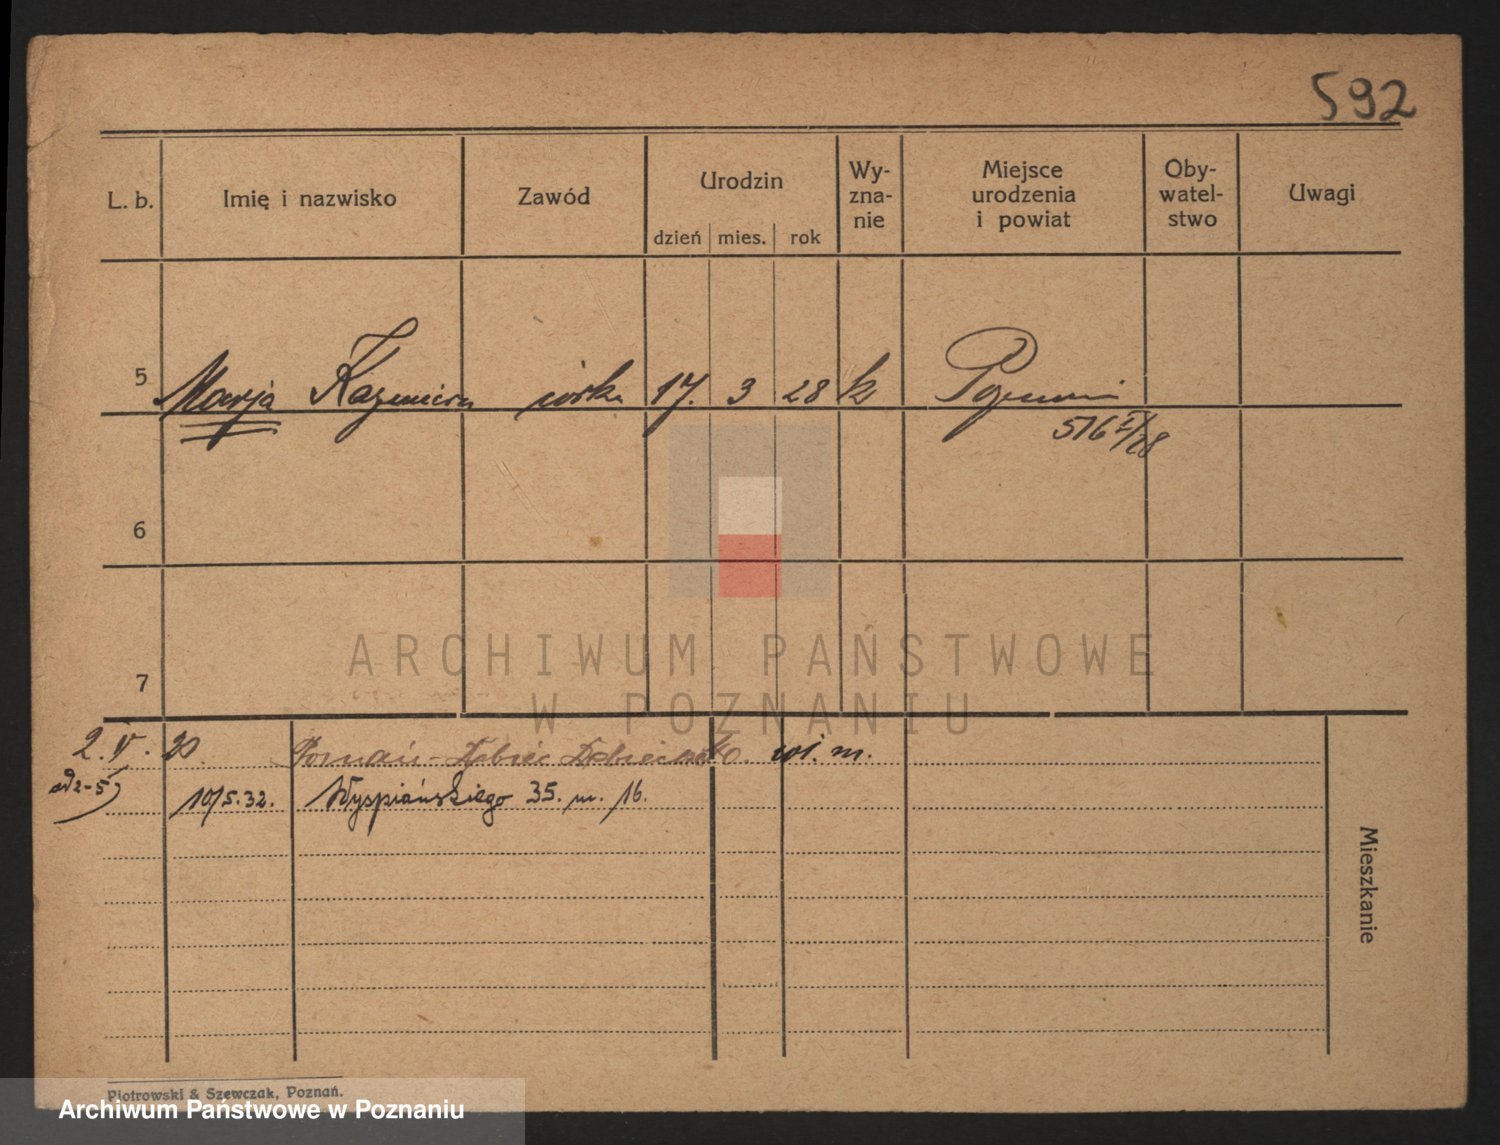 592
L. b. Imię i nazwisko Zawód Urodzin Wy-zna-nie Miejsce urodzenia i powiat Oby-watel-stwo Uwagi
dzień mies. rok
5 Marja Kazimiera córka 17. 3 28 k
516 I/28
6
7
ARCHIWUM PAŃSTWOWE
W POZNANIU
2. V. 30 Poznań - Dębiec wł. m.
od 2-5 10/5.32. Wyspiańskiego 35. m. 16.
Mieszkanie
Piotrowski & Szewczak, Poznań.
Archiwum Państwowe w Poznaniu